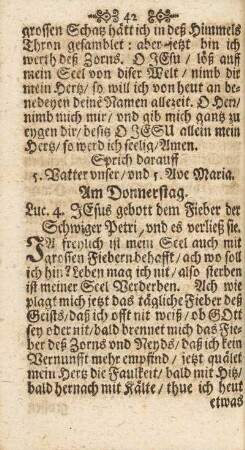 42
grossen Schatz hätt ich in deß Himmels
Thron gesamblet: aber jetzt bin ich
werth deß Zorns. O JEsu / löß auff
mein Seel von diser Welt / nimb dir
mein Hertz / so will ich von heut an be-
nedeyen deine Namen allezeit. O Herr
nimb mich mir / und gib mich gantz zu
eygen dir / besitz O JESU allein mein
Hertz / so werd ich seelig / Amen.
Sprich darauff
5. Vatter unser / und 5. Ave Maria.
Am Donnerstag.
Luc. 4. JEsus gebott dem Fieber der
Schwiger Petri, und es verließ sie.
JA freylich ist mein Seel auch mit
grossen Fiebern behafft / ach wo soll
ich hin? Leben mag ich nit / also sterben
ist meiner Seel Verderben. Ach wie
plagt mich jetzt das tägliche Fieber deß
Geists / daß ich offt nit weiß / ob GOtt
sey oder nit / bald brennet mich das Fie-
ber deß Zorns und Neyds / daß ich kein
Vernunfft mehr empfind / jetzt quälet
mein Hertz die Faulkeit / bald mit Hitz /
bald hernach mit Kälte / thue ich heut
etwas